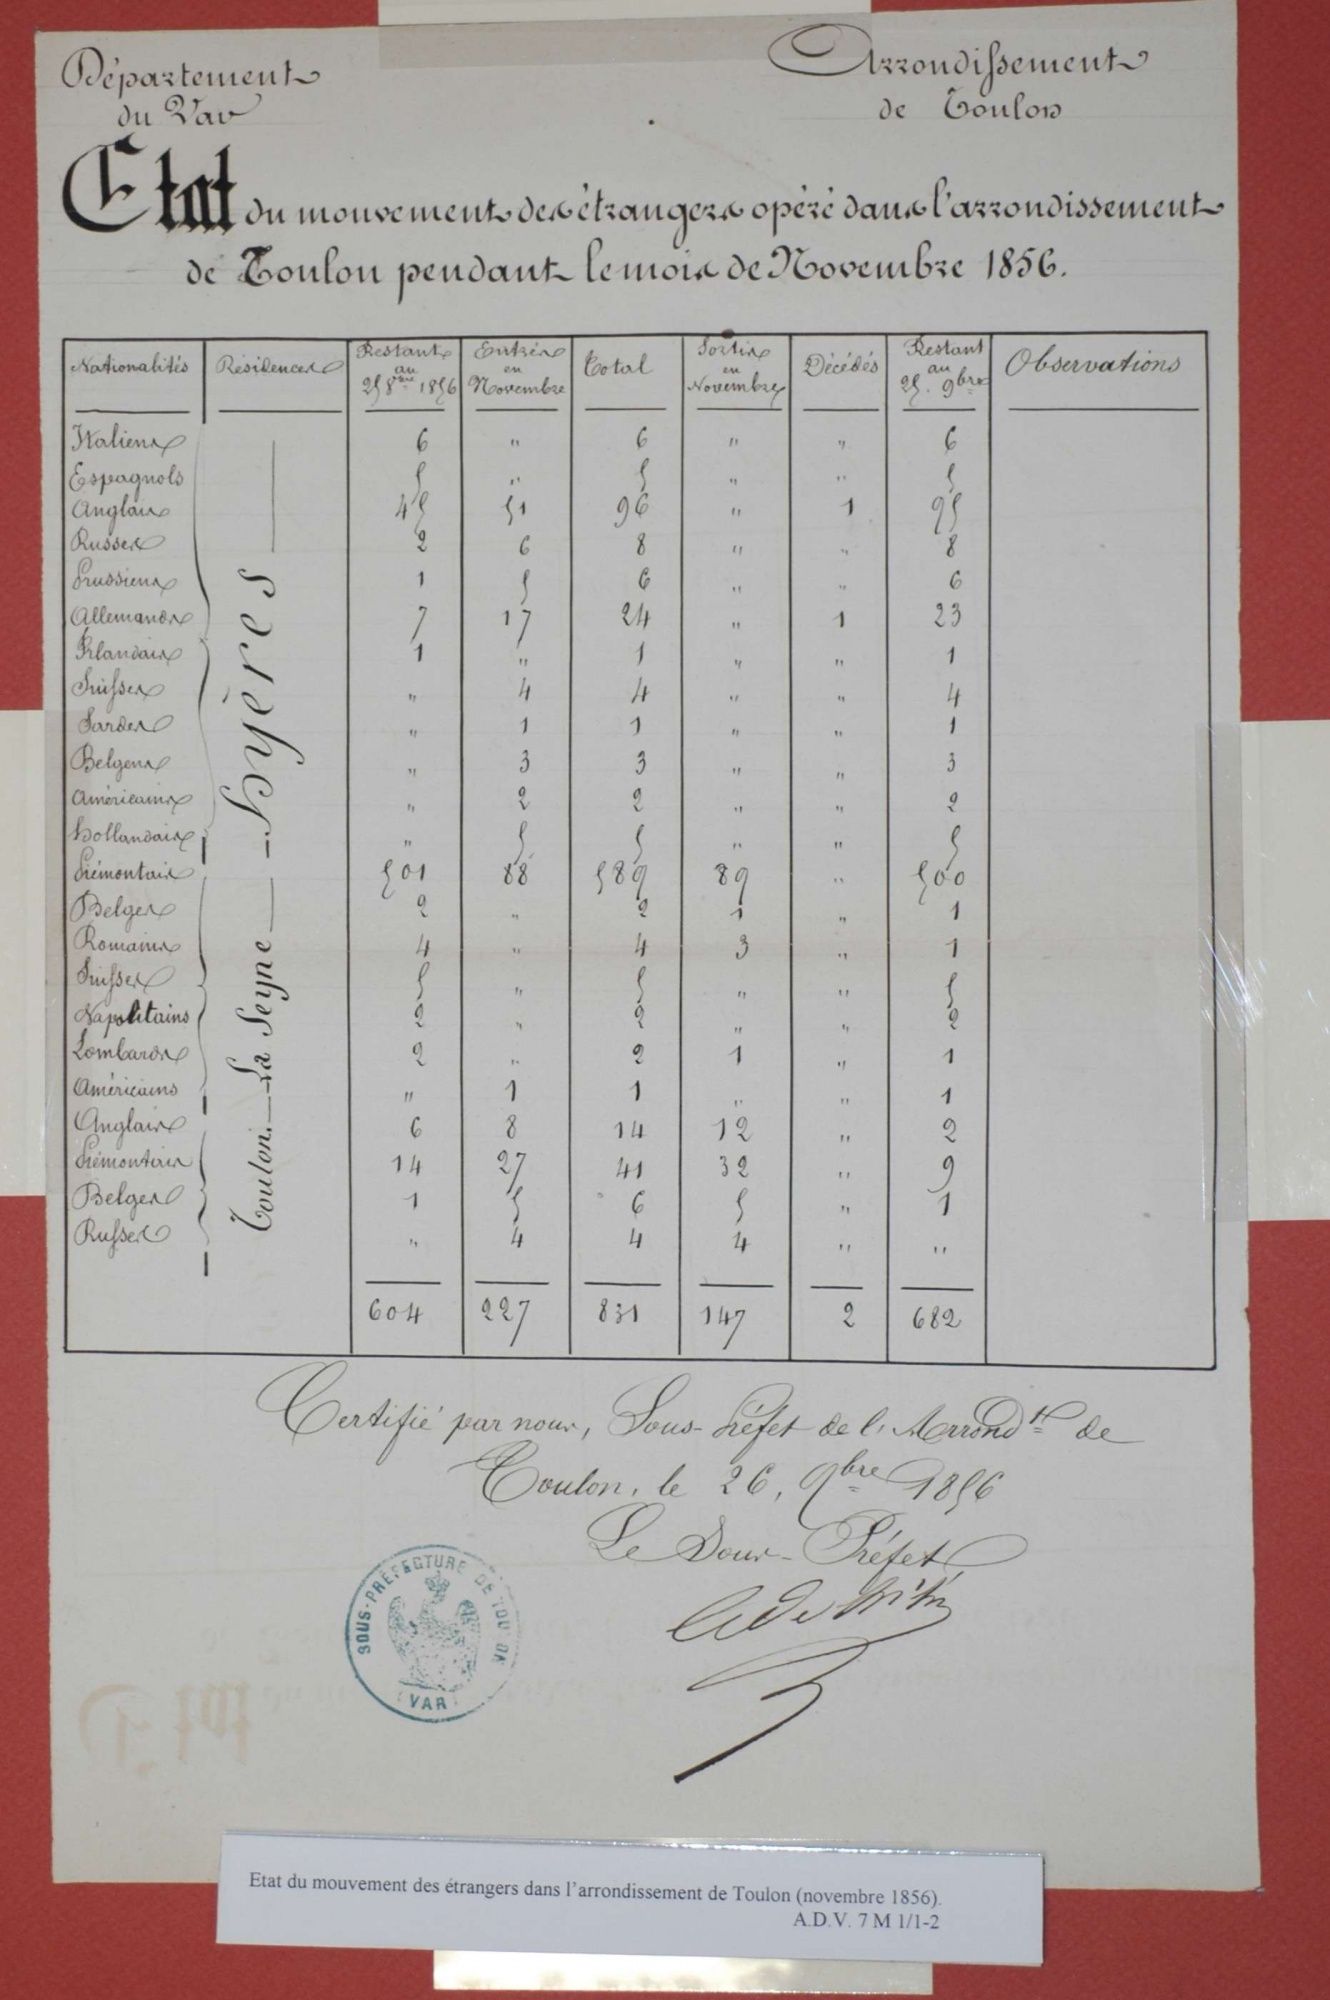 Département
du Var
Arrondissement
de Toulon
Etat du mouvement des étrangers opéré dans l'arrondissement
de Toulon pendant le mois de Novembre 1856.
Nationalités Résidences Restant au 25 8bre 1856 Entrés en Novembre Total Sortis en Novembre Décédés Restant au 25. 9bre Observations
Hyères
Italiens 6 " 6 " " 6
Espagnols 5 " 5 " " 5
Anglais 45 51 96 " 1 95
Russes 2 6 8 " " 8
Prussiens 1 5 6 " " 6
Allemands 7 17 24 " 1 23
Irlandais 1 " 1 " " 1
Suisses " 4 4 " " 4
Sardes " 1 1 " " 1
Belgens " 3 3 " " 3
Américains " 2 2 " " 2
Hollandais " 5 5 " " 5
La Seyne
Piémontais 501 88 589 89 " 500
Belges 2 " 2 1 " 1
Romains 4 " 4 3 " 1
Suisses 5 " 5 " " 5
Napolitains 2 " 2 " " 2
Lombards 2 " 2 1 " 1
Américains " 1 1 " " 1
Toulon.
Anglais 6 8 14 12 " 2
Piémontais 14 27 41 32 " 9
Belges 1 5 6 5 " 1
Russes " 4 4 4 " "
604 227 831 147 2 682
Certifié par nous, Sous-Préfet de l'Arrondt de
Toulon, le 26, 9bre 1856
Le Sous-Préfet
SOUS-PRÉFECTURE DE TOULON
(VAR)
Etat du mouvement des étrangers dans l'arrondissement de Toulon (novembre 1856).
A.D.V. 7 M 1/1-2